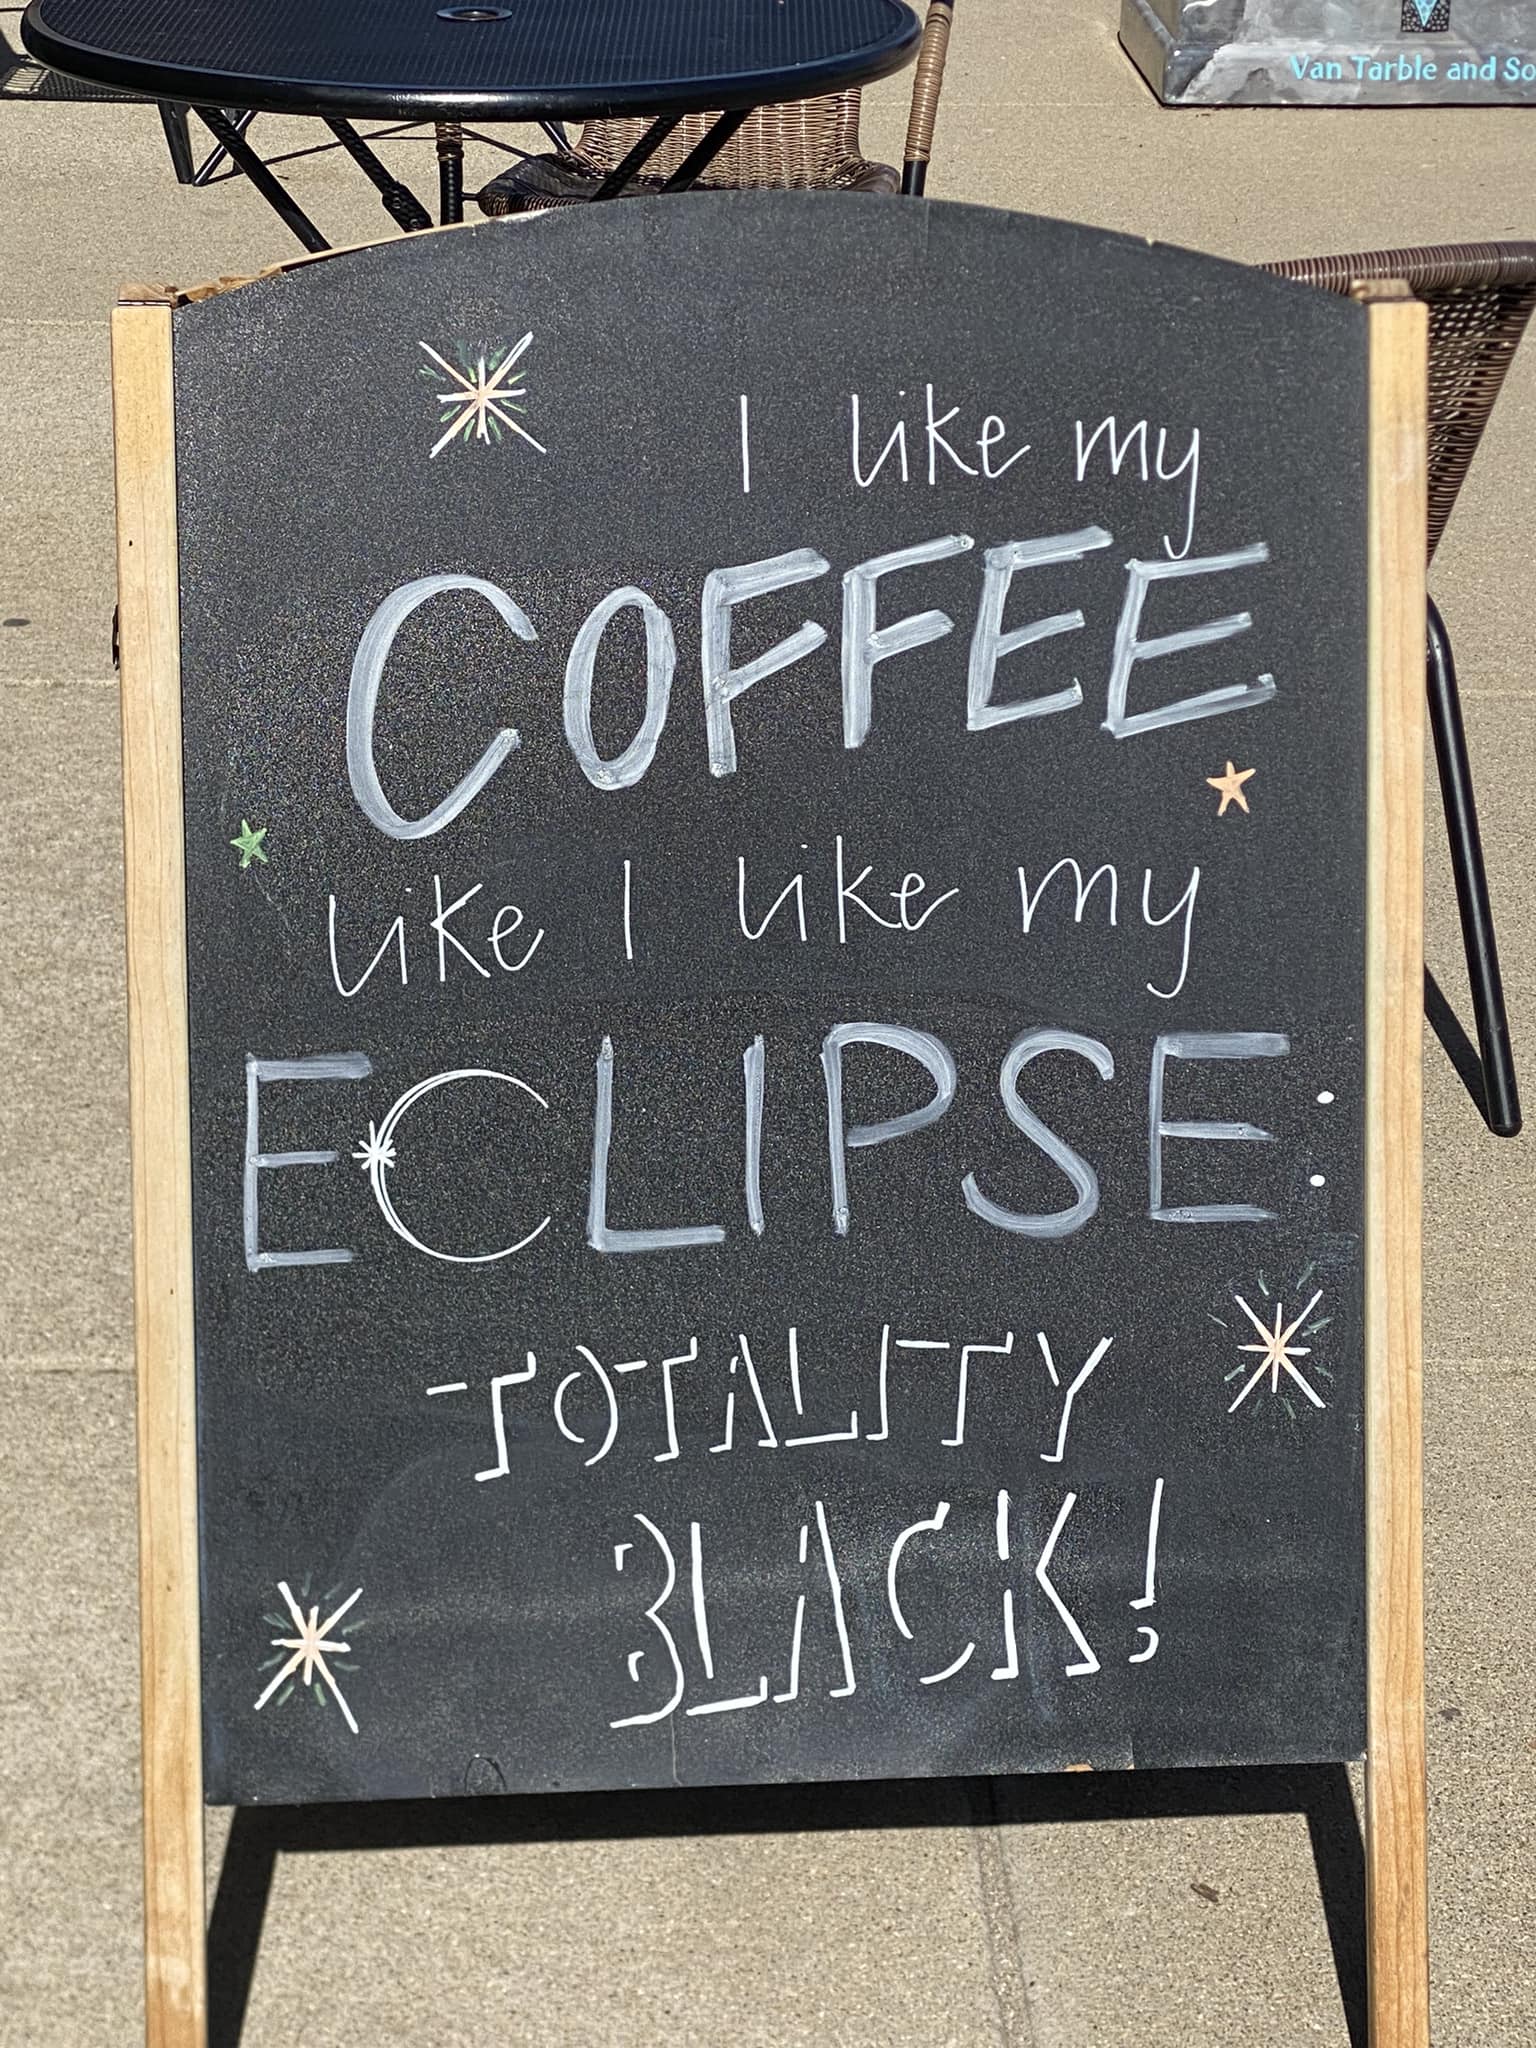 Van Tarble and So
I like my
COFFEE
like I like my
ECLIPSE:
TOTALITY
BLACK!